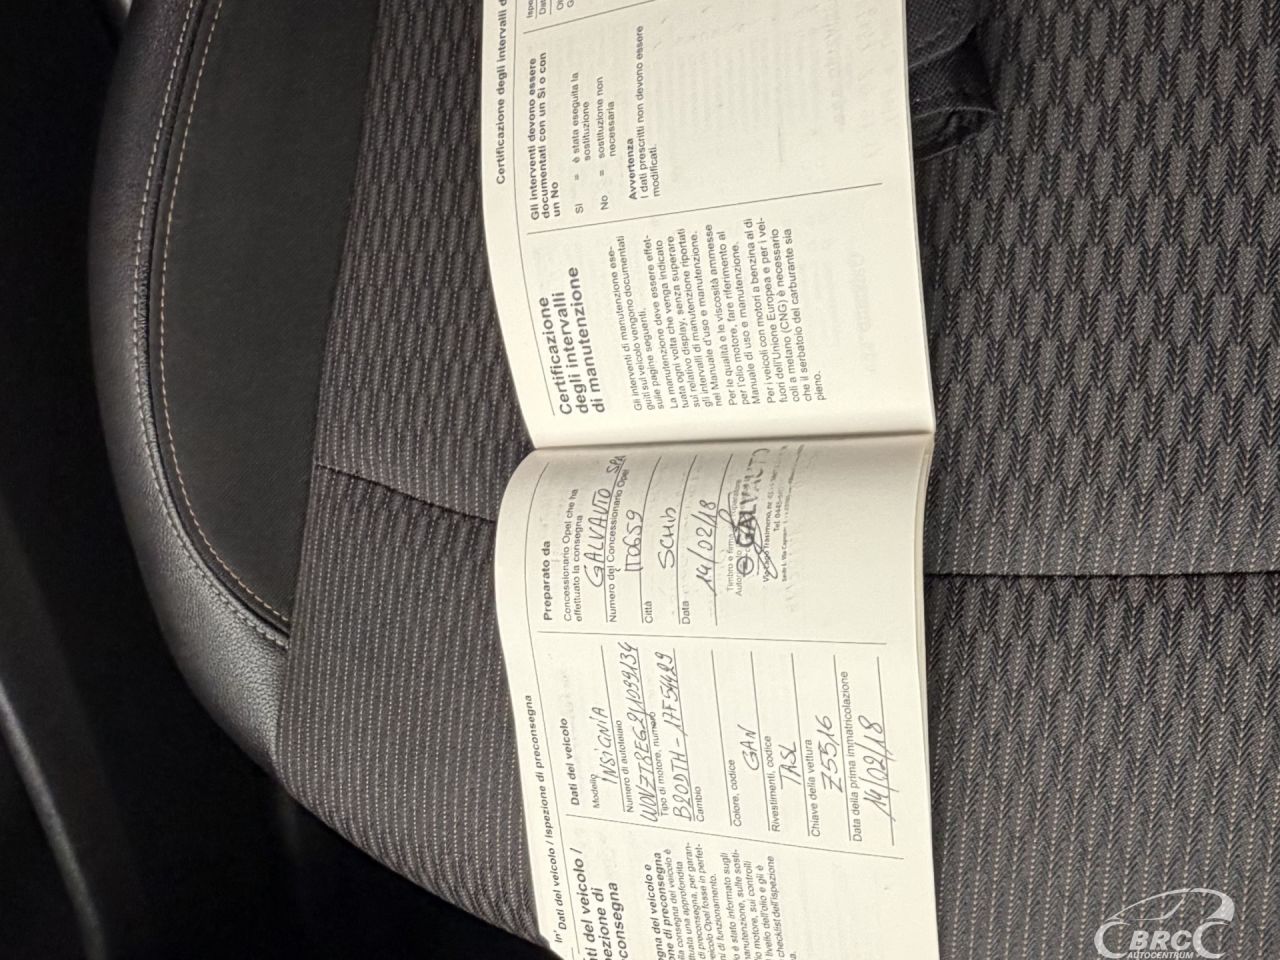 In'
Dati del veicolo / Ispezione di preconsegna
ti del veicolo /
pezione di
econsegna
gna del veicolo e
ne di preconsegna
lla consegna del veicolo è
ttuata una approfondita
di preconsegna, per garan-
veicolo Opel fosse in perfet-
ni di funzionamento.
o è stato informato sugli
manutenzione, sulle sosti-
lio motore, sui controlli
livello dell'olio e gli è
checklist dell'ispezione
a.
Dati del veicolo
Modello
INSIGNIA
Numero di autotelaio
Tipo di motore, numero
B20DTH -
Cambio
Colore, codice
GAN
Rivestimenti, codice
TASL
Chiave della vettura
Z5516
Data della prima immatricolazione
14/02/18
Preparato da
Concessionario Opel che ha
effettuato la consegna
GALVAUTO SPA
Numero del Concessionario Opel
IT0659
Città
Data
14/02/18
Timbro e firma
GALVAUTO
Certificazione
degli intervalli
di manutenzione
Gli interventi di manutenzione ese-
guiti sul veicolo vengono documentati
sulle pagine seguenti.
La manutenzione deve essere effet-
tuata ogni volta che venga indicato
sul relativo display, senza superare
gli intervalli di manutenzione riportati
nel Manuale d'uso e manutenzione.
Per le qualità e le viscosità ammesse
per l'olio motore, fare riferimento al
Manuale di uso e manutenzione.
Per i veicoli con motori a benzina al di
fuori dell'Unione Europea e per i vei-
coli a metano (CNG) è necessario
che il serbatoio del carburante sia
pieno.
Certificazione degli intervalli d
Gli interventi devono essere
documentati con un Sì o con
un No
Sì = è stata eseguita la
sostituzione
No = sostituzione non
necessaria
Avvertenza
I dati prescritti non devono essere
modificati.
BRC
AUTOCENTRUM